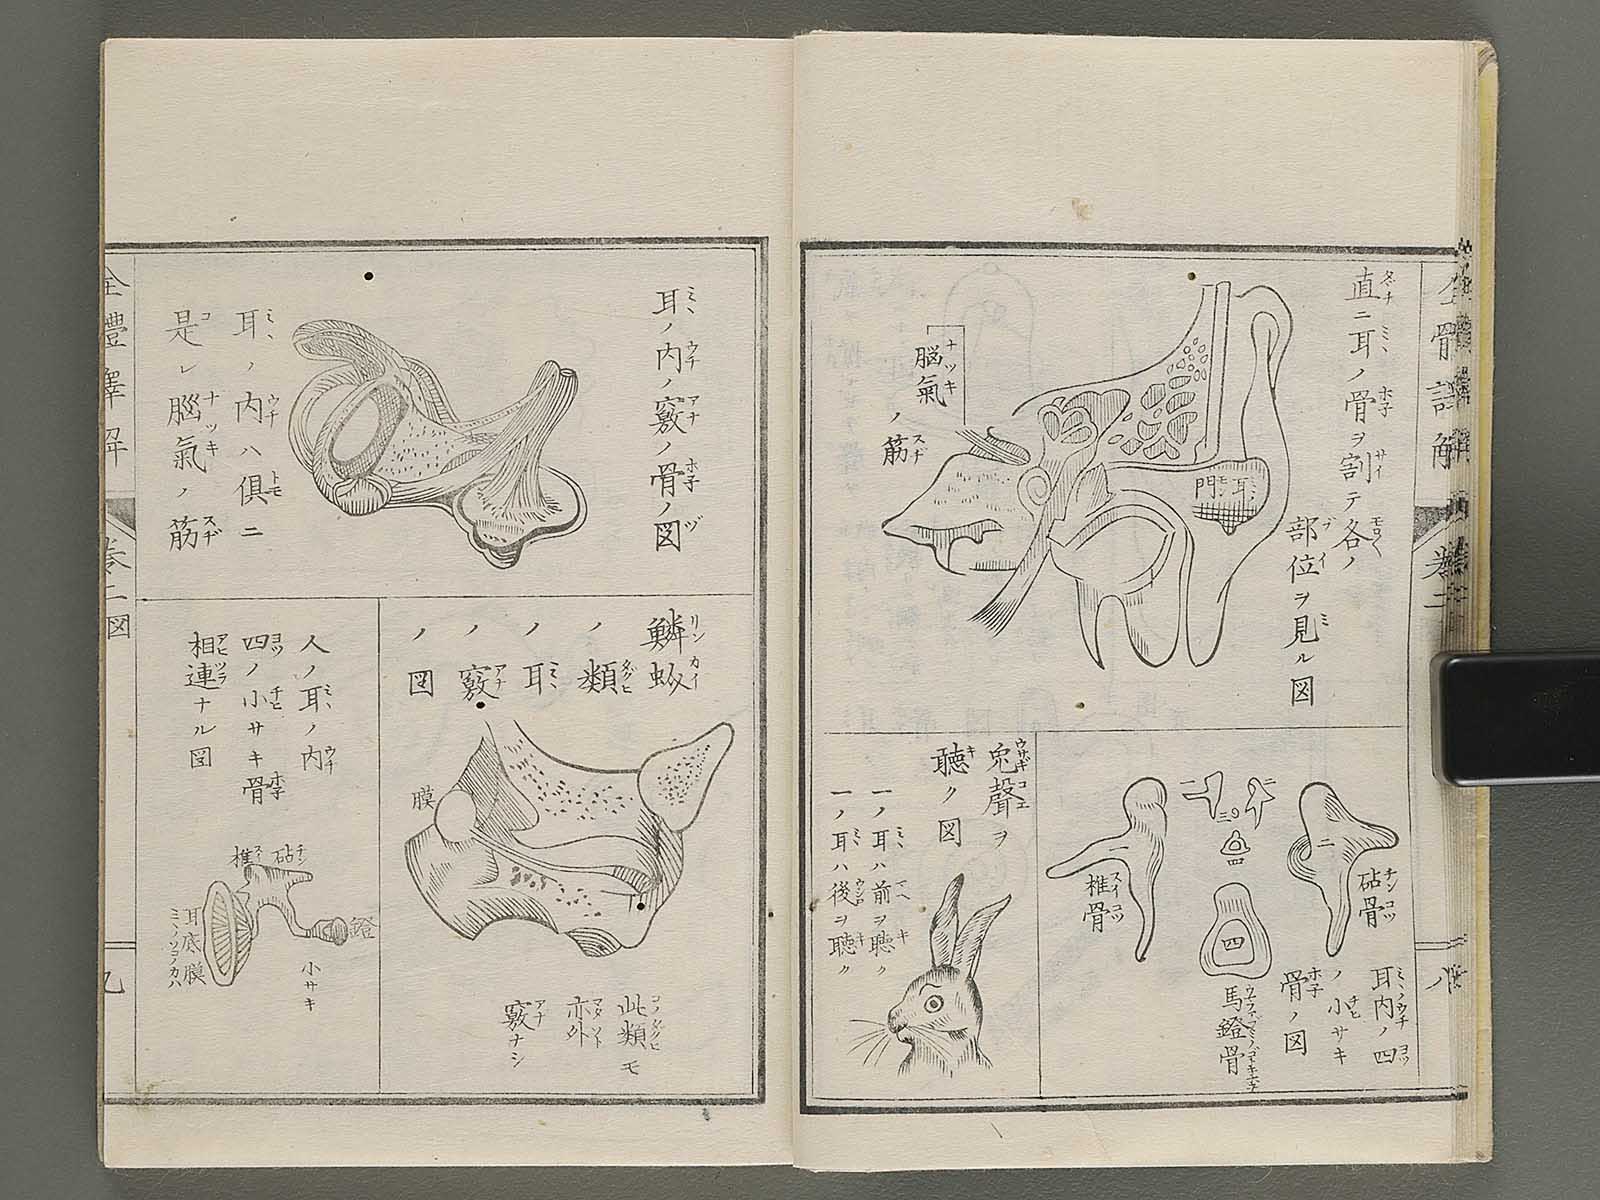 直ニ耳ノ骨ヲ割テ各ノ
部位ヲ見ル図
脳氣
ノ筋
耳門
砧骨
椎骨
二
四
四
耳内ノ四
ノ小サキ
骨ノ図
馬鐙骨
兎聲ヲ
聴ク図
一ノ耳ハ前ヲ聴ク
一ノ耳ハ後ヲ聴ク
巻二
八
耳ノ内ノ竅ノ骨ノ図
耳ノ内ハ倶ニ
是レ脳氣ノ筋
ノ類ノ耳ノ竅ノ図
膜
此類モ
亦外
竅ナシ
人ノ耳ノ内
四ノ小サキ骨
相連ナル図
砧
椎
鐙
小サキ
耳底膜
全體
巻二図
九